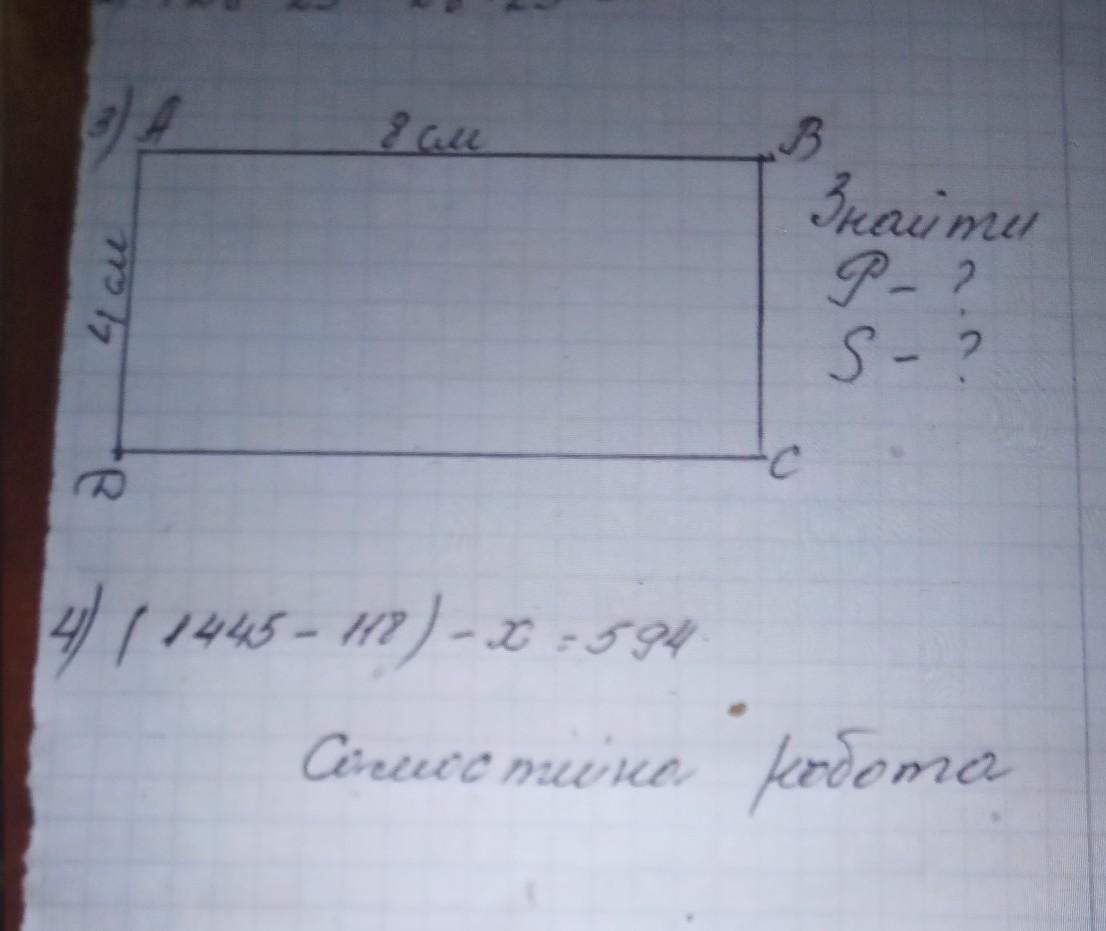 3) A 8 см B
4 см
Знайти
P - ?
S - ?
D C
4) (1445 - 118) - x = 594
Самостійна робота